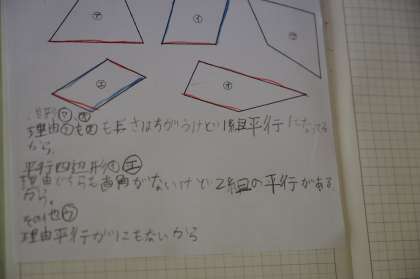 ア
イ
ウ
エ
オ
台形ア オ
理由アもオも長さはちがうけど1組平行になってる
から。
平行四辺形イエ
理由どちらも直角がないけど2組の平行がある
から。
その他ウ
理由平行がにもないから